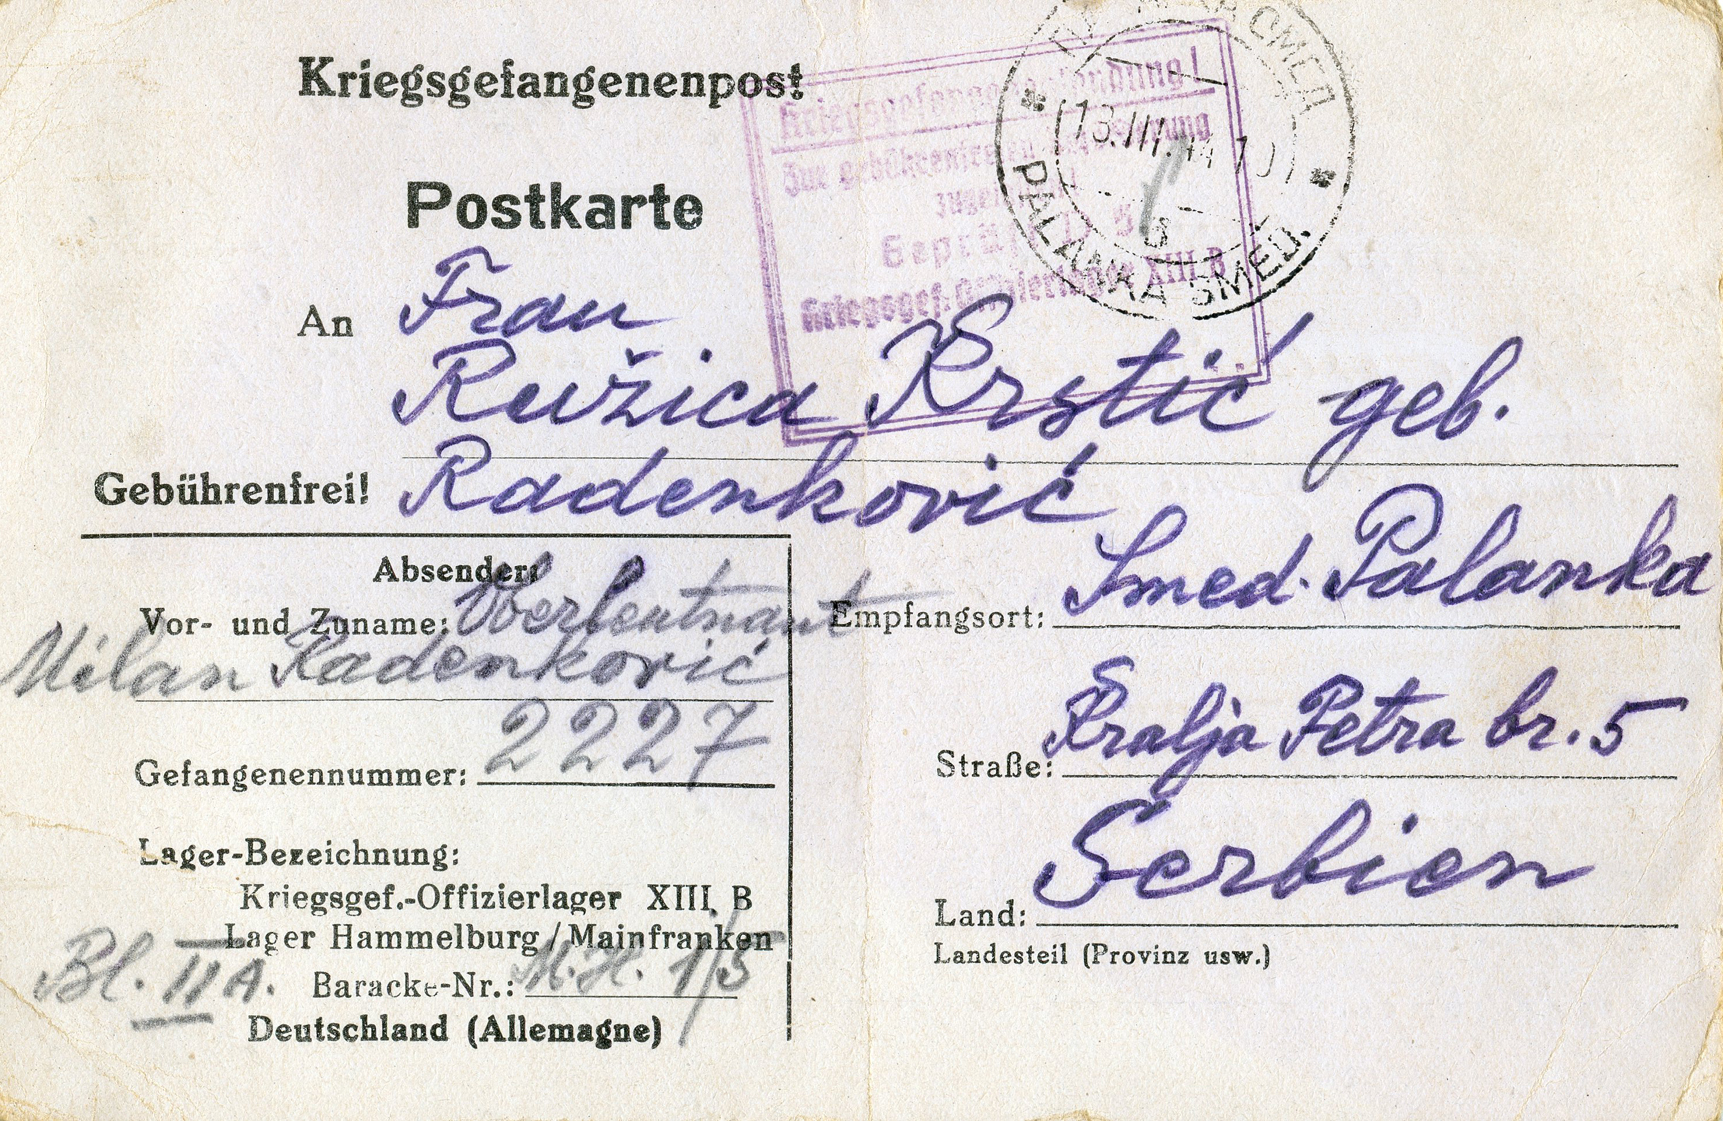 Kriegsgefangenenpost
Postkarte
Kriegsgefangenensendung!
Zur gebührenfreien Beförderung
zugelassen!
Geprüft
Kriegsgef. Offizierlager XIII B
13.III.44
PALANKA SMED.
An Frau
Ružica Krstić geb.
Gebührenfrei! Radenković
Absender:
Vor- und Zuname: Oberleutnant
Milan Radenković
Gefangenennummer: 2227
Lager-Bezeichnung:
Kriegsgef.-Offizierlager XIII B
Lager Hammelburg / Mainfranken
Bl. II A. Baracke-Nr.: M.H. 1/5
Deutschland (Allemagne)
Empfangsort: Smed. Palanka
Straße: Kralja Petra br. 5
Serbien
Land:
Landesteil (Provinz usw.)